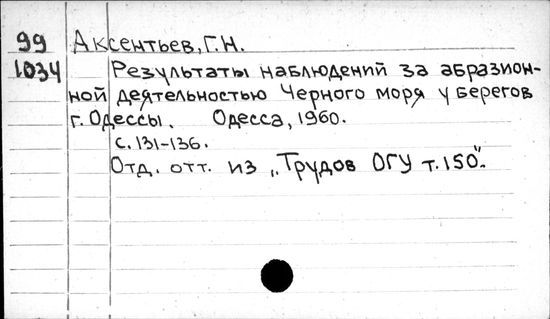 99 Аксентьев, Г.Н.
1034 Результаты наблюдений за абразион-
ной деятельностью Черного моря у берегов
г. Одессы. Одесса, 1960.
с. 131-136.
Отд. отт. из „Трудов ОГУ т. 150".